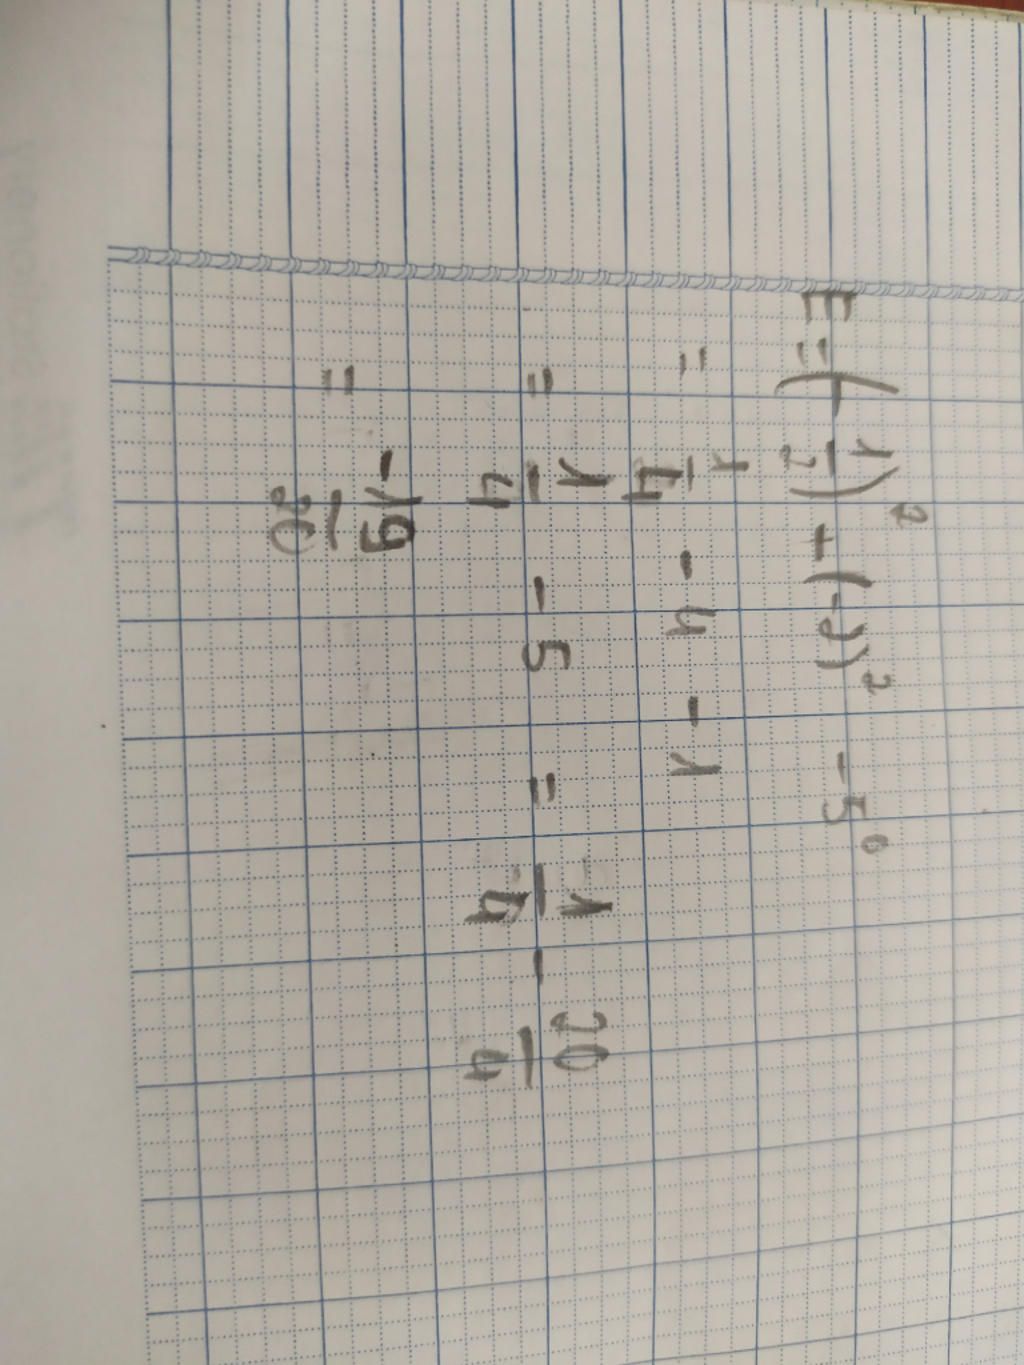 E = (-1/2)² + (-2)² - 5⁰
= 1/4 - 4 - 1
= 1/4 - 5 = 1/4 - 20/4
= -19/20